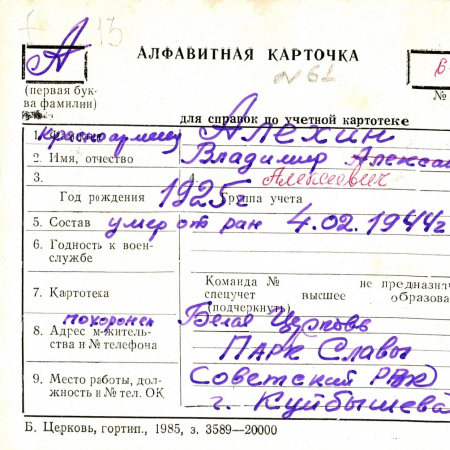 А
13
АЛФАВИТНАЯ КАРТОЧКА
№ 61
В-
(первая бук-
ва фамилии)
№
для справок по учетной картотеке
1. красноармеец Алехин
2. Имя, отчество Владимир Алексан
3. 4. Алексеевич
Год рождения 1925г Группа учета
5. Состав умер от ран 4.02.1944г
6. Годность к воен-
службе
Команда № не предназнач
7. Картотека спецучет высшее образова
(подчеркнуть)
похоронен Белая Церковь
8. Адрес м-житель-
ства и № телефона Парк Славы
9. Место работы, дол-
жность и № тел. ОК
Советский РВК
г. Куйбышева
Б. Церковь, гортип., 1985, з. 3589—20000